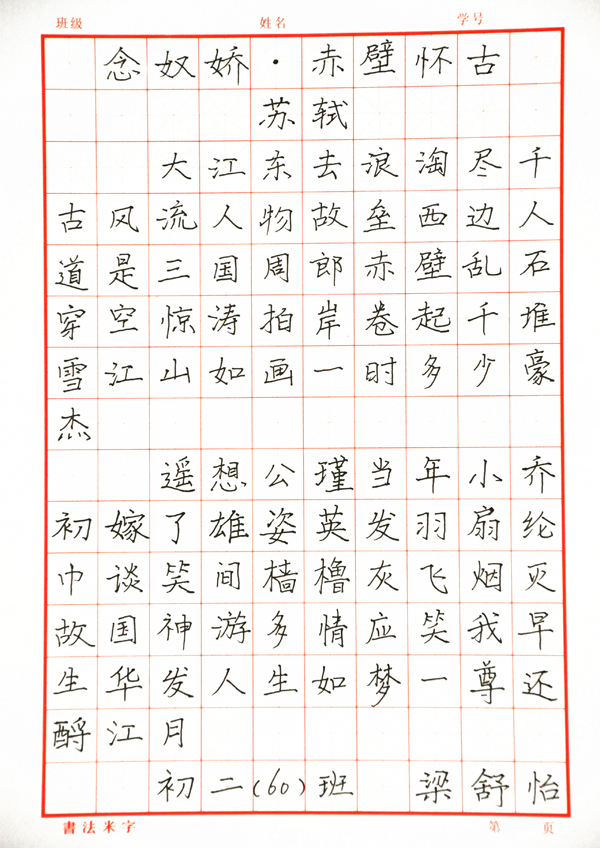 班級 姓名 学号
念奴娇·赤壁怀古
苏轼
大江东去浪淘尽千
古风流人物故垒西边人
道是三国周郎赤壁乱石
穿空惊涛拍岸卷起千堆
雪江山如画一时多少豪
杰
遥想公瑾当年小乔
初嫁了雄姿英发羽扇纶
巾谈笑间樯橹灰飞烟灭
故国神游多情应笑我早
生华发人生如梦一尊还
酹江月
初二(60)班 梁舒怡
書法米字 第 页